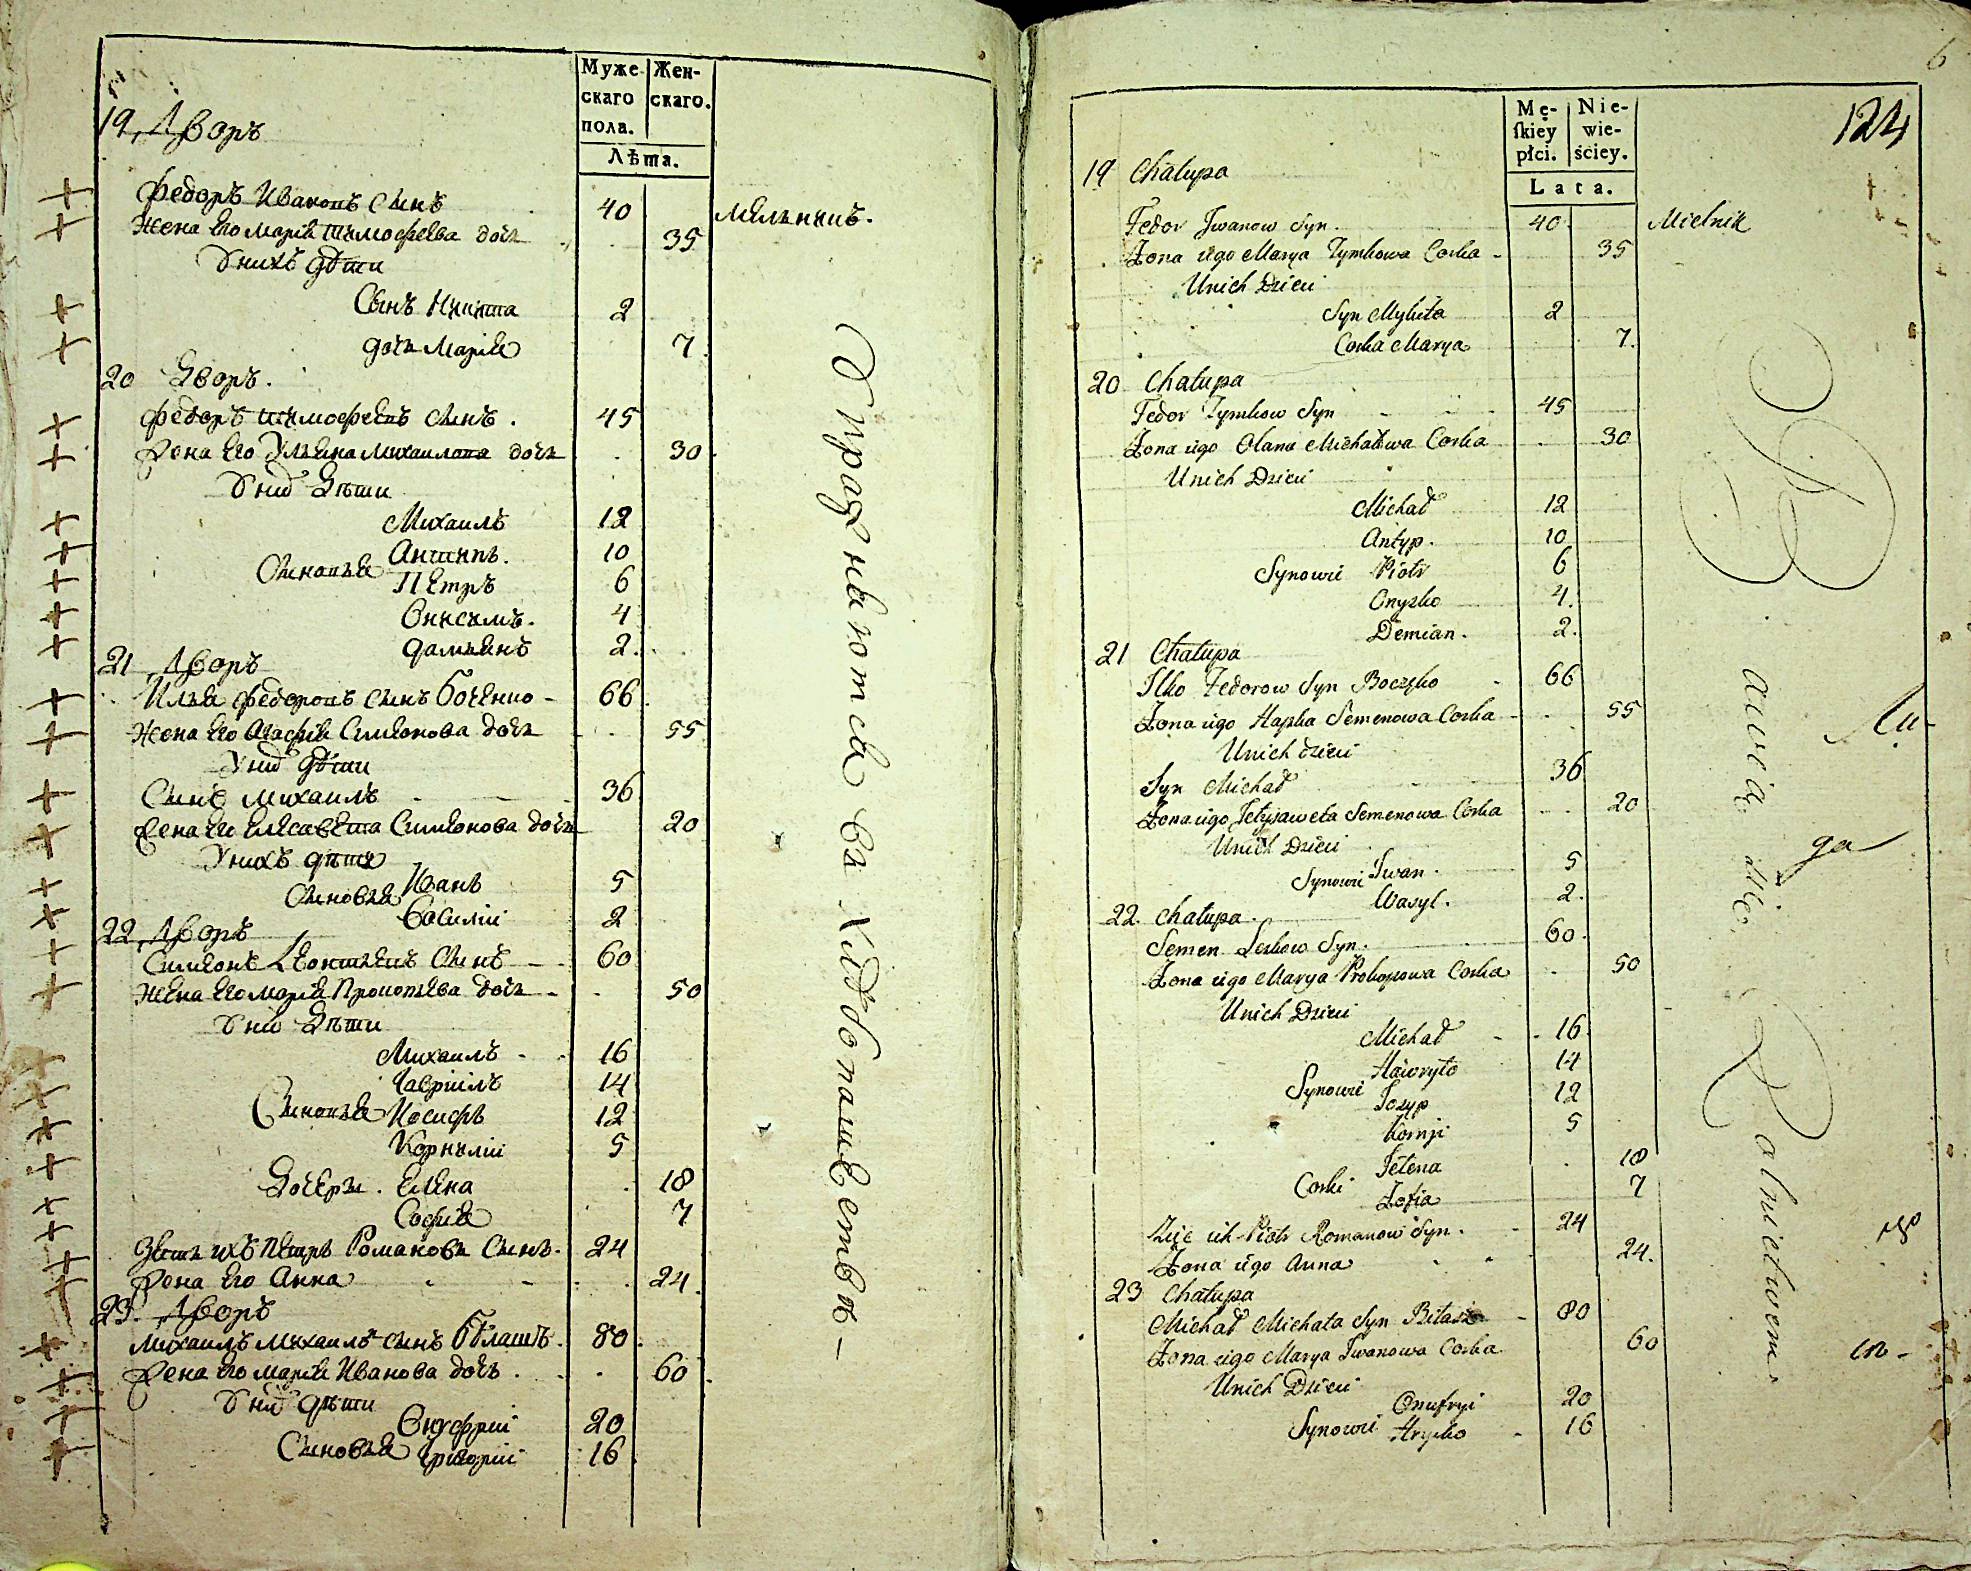 Муже
скаго
пола.
Жен-
скаго.
Лѣта.
19 Дворъ
Федоръ Ивановъ сынъ 40 Мельникъ.
Жена его Марія Тимофеева дочь 35
У нихъ дѣти
Сынъ Никита 2
дочь Марія 7.
20 Дворъ.
Федоръ Тимофеевъ сынъ. 45
Жена его Ульяна Михаилова дочь 30
У них дѣти
Михаилъ 12
Антипъ. 10
Сыновья Петръ 6
Онисимъ. 4
Дамьянъ 2.
21 Дворъ
Илья Федоровъ сынъ Боченко - 66
Жена его Агафія Симеонова дочь 55
У них дѣти
Сынъ Михаилъ 36
Жена его Елисавета Симеонова дочь 20
У нихъ дѣти
Сыновья Иванъ 5
Василій 2
22 Дворъ
Симеонъ Леонтьевъ сынъ 60
Жена его Марія Прокопьева дочь 50
У них дѣти
Михаилъ 16
Гавріилъ 14
Сыновья Иосифъ 12
Корнилій 5
Дочери. Елена 18
Софія 7
Зять ихъ Петръ Романовъ сынъ. 24
Жена его Анна 24.
23. Дворъ
Михаилъ Михаилъ сынъ Бѣлашъ. 80
Жена его Марія Иванова дочь. 60
У них дѣти
Онуфрій 20
Сыновья Григорій 16
Упражняются въ Хлѣбопашествѣ -
6
124
Mę-
ſkiey
płci.
Nie-
wie-
ściey.
Lata.
19 Chałupa
Fedor Iwanow Syn. 40 Mielnik
Żona iego Marya Tymkowa Corka 35
U nich Dzieci
Syn Mykita 2
Corka Marya 7.
20 Chałupa
Fedor Tymkow Syn 45
Żona iego Olana Michałowa Corka 30
U nich Dzieci
Michał 12
Antyp. 10
Synowie Piotr 6
Onyszko 4.
Demian. 2.
21 Chałupa
Ilko Fedorow Syn Boczko 66
Żona iego Hapka Semenowa Corka 55
U nich dzieci
Syn Michał 36
Żona iego Jełyzaweta Semenowa Corka 20
U nich Dzieci
Synowie Iwan. 5
Wasyl. 2.
22. Chałupa.
Semen Leskow Syn. 60.
Żona iego Marya Prokopowa Corka 50
U nich Dzieci
Michał 16
Hawryło 14
Synowie Jozyp 12
Kornyi 5
Corki Jełena 18
Zofia 7
Zięć ich Piotr Romanow Syn. 24
Żona iego Anna 24.
23 Chałupa
Michał Michała Syn Biłasz 80
Żona iego Marya Iwanowa Corka 60
U nich Dzieci
Onufryi 20
Synowie Hryćko 16
Bawią się Rolnictwem